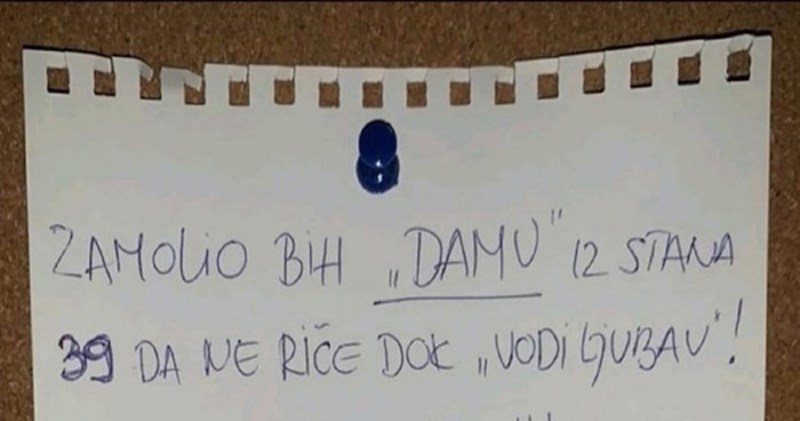 ZAMOLIO BIH „DAMU" IZ STANA
39 DA NE RIČE DOK „VODI LJUBAV"!